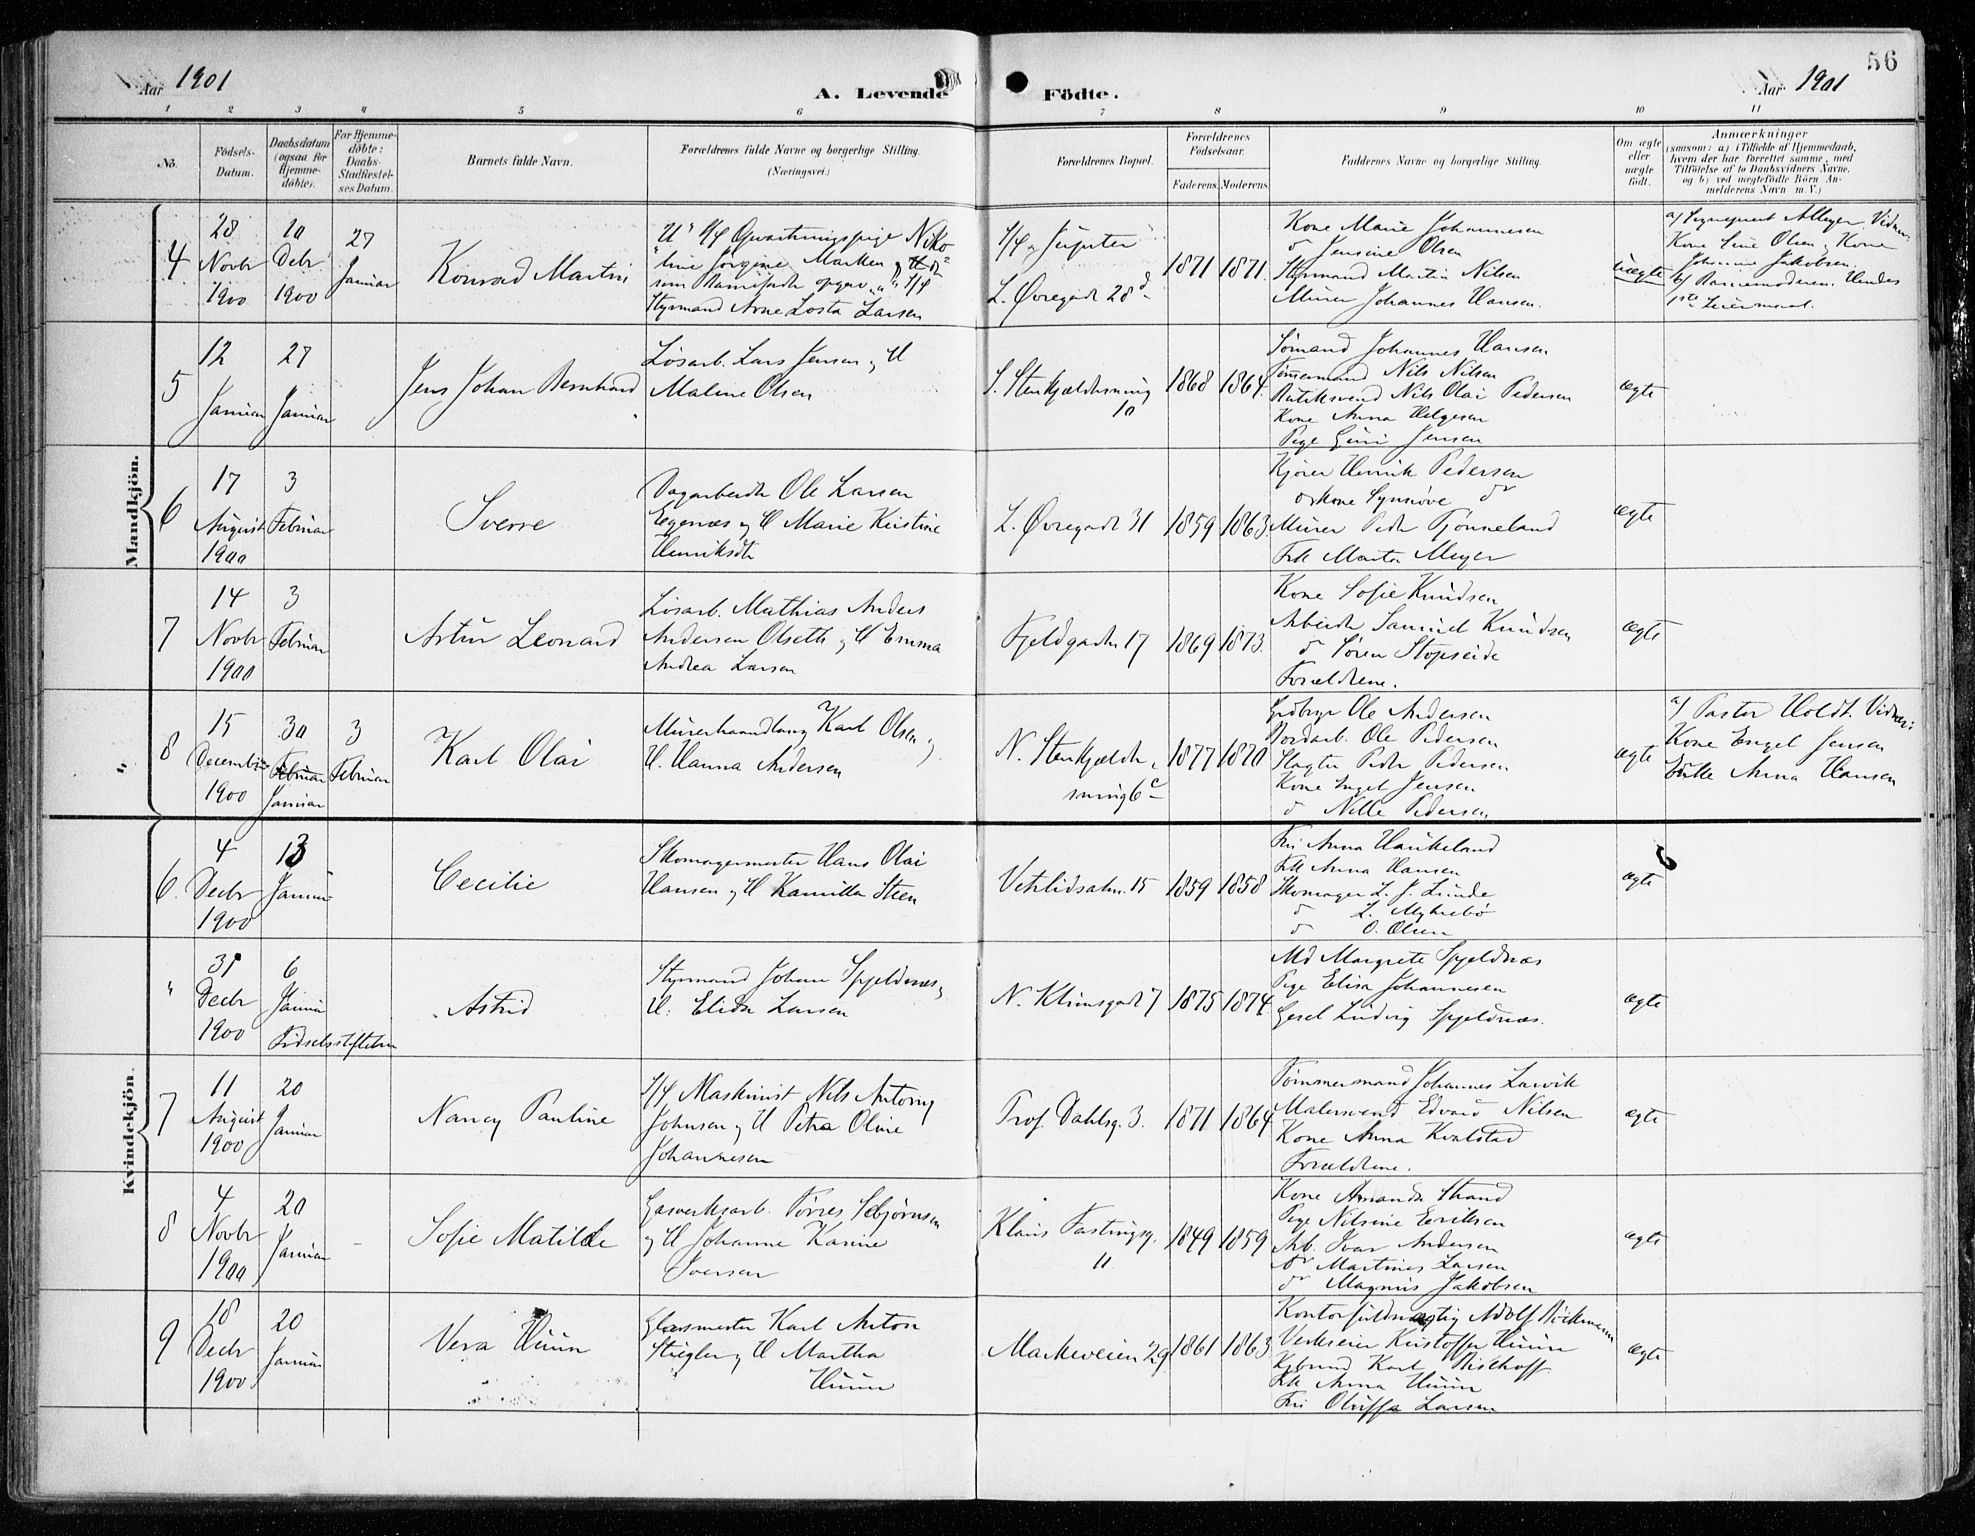 56
Aar 1901
A. Levende Födte.
Aar 1901
1 2 3 4 5 6 7 8 9 10 11
Nö.
Födsels-Datum.
Daabsdatum (ogsaa for Hjemme-döbte).
For Hjemme-döbte: Daabs-Stadfæstel-ses Datum.
Barnets fulde Navn.
Forældrenes fulde Navne og borgerlige Stilling. (Næringsvei.)
Forældrenes Bopæl.
Forældrenes Födselsaar.
Faderens. Moderens.
Faddernes Navne og borgerlige Stilling.
Om ægte eller uægte födt.
Anmærkninger
(saasom: a) i Tilfælde af Hjemmedaab, hvem der har forrettet samme, med Tilföielse af to Daabsvidners Navne, og b) ved uægtefödte Börn Anmelderens Navn m. V.)
Mandkjön.
4
28 Novbr 1900
10 Debr 1900
27 Januar
Konrad Martin
Styrmand Arne Losta Larsen
Jupiter
L. Øvregade 28
1871 1871
Kone Marie Johannesen
d Jensine Olsen
Styrmand Martin Nilsen
Murer Johannes Hansen.
uægte
Vidner:
Kone Sine Olsen, Kone
Jakobsen
b) Barnemoderen. Hendes
1ste Leiermaal.
5
12 Januar
27 Januar
Jens Johan Bernhard
Løsarb. Lars Jensen, H
Maline Olsen
S. Stenkjeldersmug
10
1868 1864.
Sømand Johannes Hansen
Tømmermand Nils Nilsen
Nils Olai Pedersen
Kone Anna Helgesen
Pige Jensen
ægte
6
17 August 1900
3 Februar
Sverre
Dagarbeider Ole Larsen
Egenæs og H Marie Kristine
Henriksdtr
L. Øvregade 31
1859 1863.
Kjører Henrik Pedersen
og Kone Synnøve dr
Murer Peder Tjønneland
Frk Marta Meyer
ægte
7
14 Novbr 1900
3 Februar
Artur Leonard
Løsarb. Mathias Anders
Andersen Olseth og H Emma
Andrea Larsen
Fjeldgaden 17
1869 1873.
Kone Sofie Knudsen
Arbeider Samuel Knudsen
d Søren Stopseide
Forældrene.
ægte
8
15 December 1900
30 Februar Januar
3 Februar
Karl Olai
Murerhaandlang Karl Olsen og
H. Hanna Andersen
N. Stenkjelder-
smug 6c
1877 1870
Ole Andersen
Jordarb. Ole Pedersen
Slagter Peder Pedersen
Kone Engel Jensen
d Nille Pedersen
ægte
a) Pastor Holdt. Vidner:
Kone Engel Jensen
Enke Anna Hansen
Kvindekjön.
6.
4 Decbr 1900
13 Januar
Cecilie
Skomagermester Hans Olai
Hansen og H Kamilla Steen
Vetrlidsalm. 15
1859 1858
Fru Anna Haukeland
Frk Anna Hansen
Skomager L. J. Lunde
d L. Myhrebø
d O. Olsen
ægte
"
31 Decbr 1900
6 Januar
Fødselsstiftelsen
Astrid
Styrmand Johan Spjeldnæs og
H. Elida Larsen
N. Klimsgade 7
1875 1874
Md Margrete Spjeldnæs
Pige Elisa Johannesen
Gesel Ludvig Spjeldnæs.
ægte
7
11 August 1900
20 Januar
Nancy Pauline
Maskinist Nils Antony
Johnsen og H Petra Oline
Johannesen
Prof. Dahlsg. 3.
1871 1864
Tømmermand Johannes Larvik
Malersvend Edvard Nilsen
Kone Anna Kvalstad
Forældrene.
ægte
8
4 Novbr 1900
20 Januar
-
Sofie Matilde
Gasverksarb. Tørres Sebjørnsen
og H Johanne Karine
Iversen
Klaus Fastingsg.
11
1849 1859
Kone Amanda Strand
Pige Nilsine Eeriksen
Arb. Ivar Andersen
d Martines Larsen
d Magnus Jakobsen
ægte
9
18 Decbr 1900
20 Januar
Vera Huun
Glasmester Karl Anton
Stiegler og H Martha
Huun
Markeveien 29
1861 1863
Kontorfuldmægtig Adolf Böckmann
Verkseier Kristoffer Huun
Karl Bischoff
Frk Anna Huun
Fru Oluffa Larsen
ægte